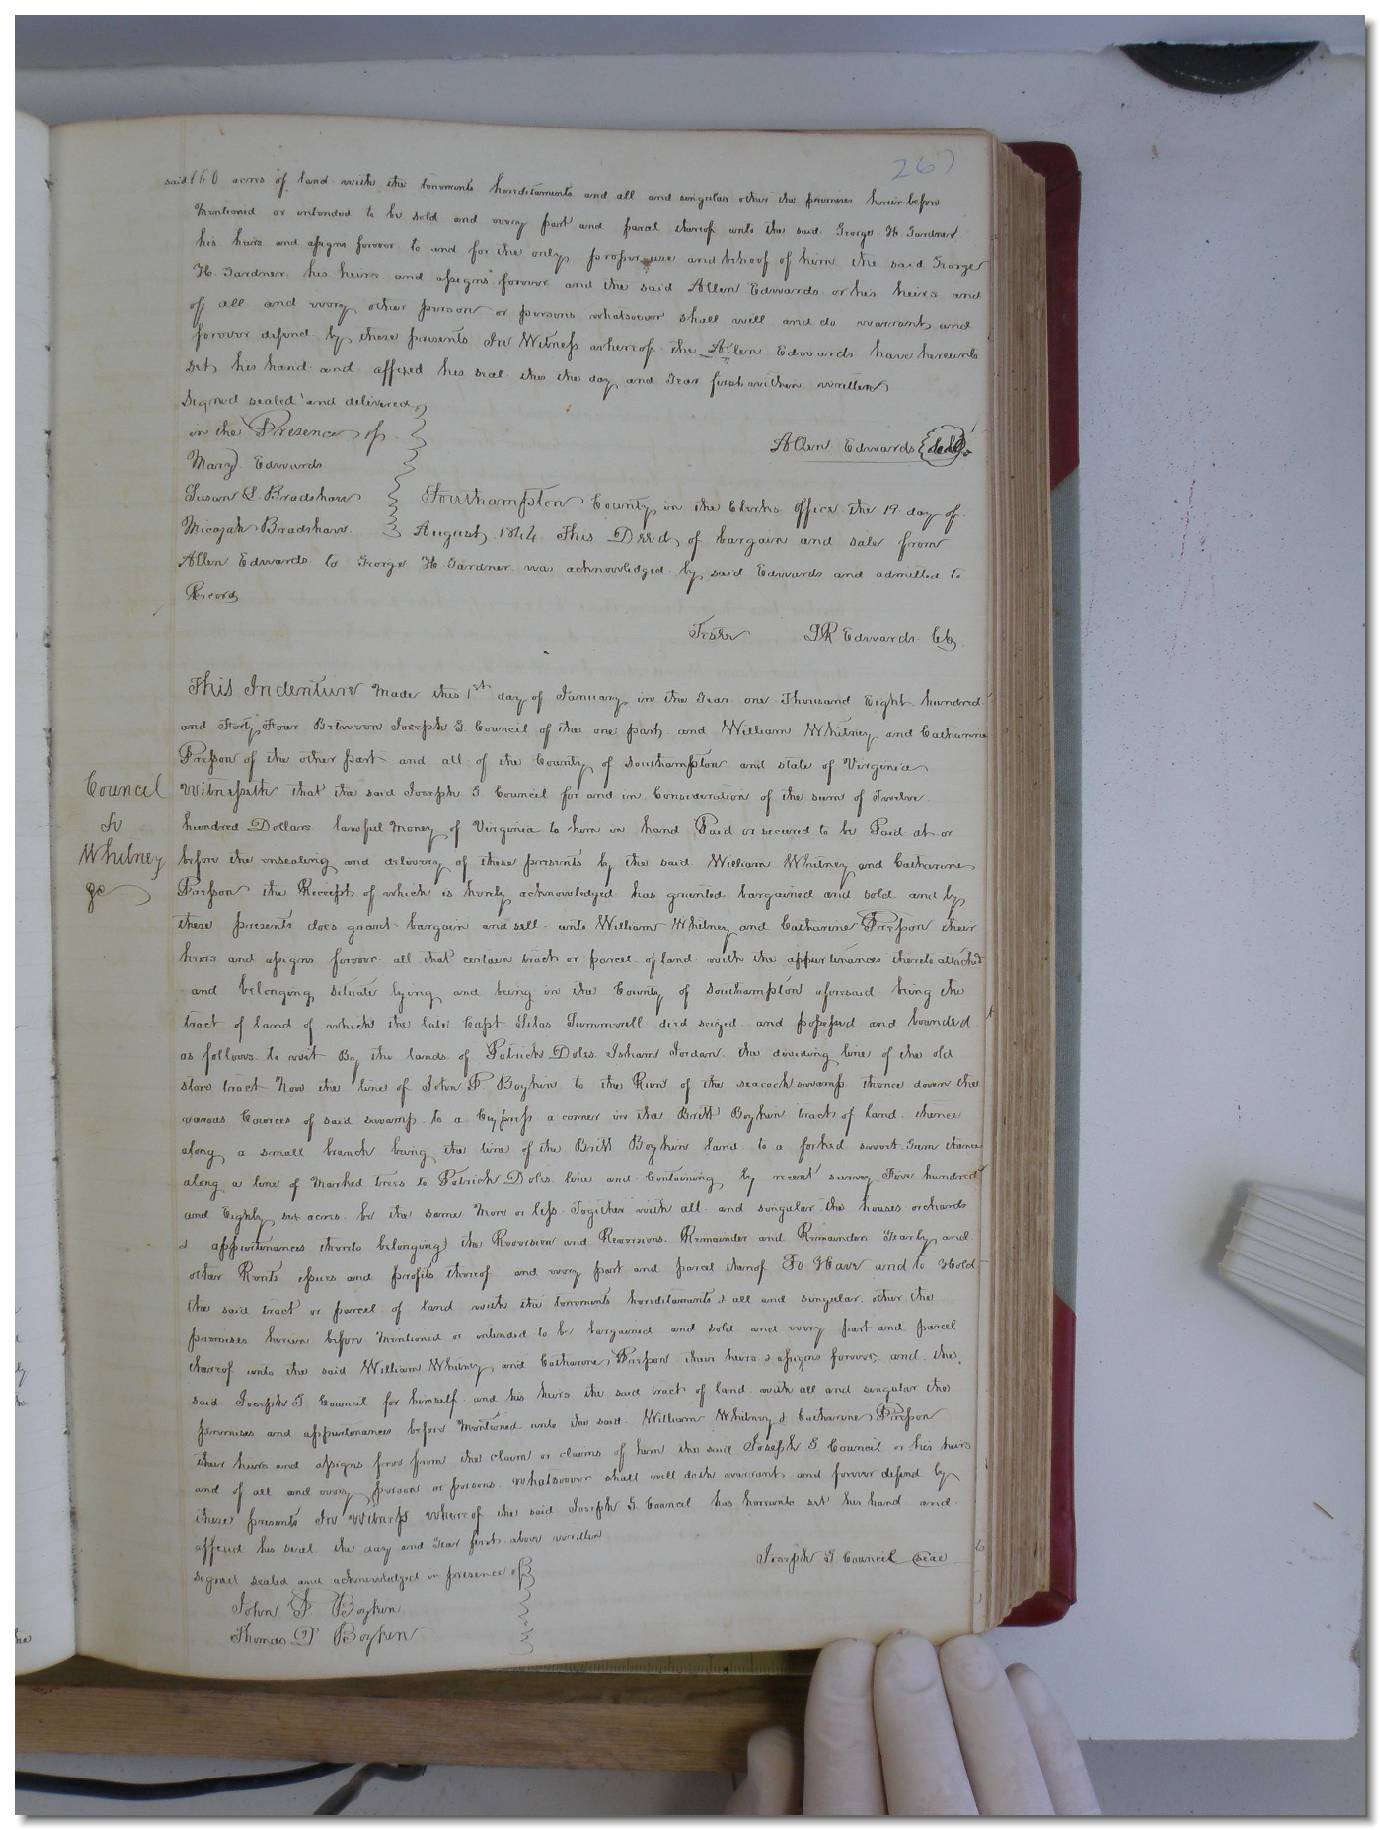 267
said 160 acres of land with the tenements hereditaments and all and singular other the premises herein before
Mentioned or intended to be sold and every part and parcel thereof unto the said George H Gardner
his heirs and assigns forever to and for the only proper use and behoof of him the said George
H. Gardner his heirs and assigns forever and the said Allen Edwards or his heirs and
of all and every other person or persons whatsoever shall will and do warrant and
forever defend by these presents In Witness whereof the Allen Edwards have hereunto
set his hand and affixed his seal this the day and Year first within written
Signed sealed and delivered
in the Presence of
Allen Edwards Seal
Mary Edwards
Susan S. Bradshaw
Southampton County in the Clerks office the 19 day of
Micajah Bradshaw
August 1844 This Deed of bargain and sale from
Allen Edwards to George H Gardner was acknowledged by said Edwards and admitted to
Record
Teste L R Edwards Clk
This Indenture Made this 1st day of January in the Year one Thousand Eight hundred
and Forty Four Between Joseph G. Council of the one part and William Whitney and Catharine
Presson of the other part and all of the County of Southampton and state of Virginia
Council
to
Whitney
&c
Witnesseth that the said Joseph G Council for and in Consideration of the sum of Twelve
hundred Dollars lawful Money of Virginia to him in hand Paid or secured to be Paid at or
before the ensealing and delivery of these presents by the said William Whitney and Catharine
Presson the Receipt of which is hereby acknowledged has granted bargained and sold and by
these presents does grant bargain and sell unto William Whitney and Catharine Presson their
heirs and assigns forever all that certain tract or parcel of land with the appurtinances thereto attached
and belonging situate lying and being in the County of Southampton aforesaid being the
tract of land of which the late Capt Silas Summerell died seized and possessed and bounded
as follows to wit By the lands of Patrick Doles Isham Jordan the dividing line of the old
store tract Now the line of John P. Boykin to the Run of the seacock swamp thence down the
various Cources of said swamp to a Cypress a corner in the Britt Boykin tract of land thence
along a small branch being the line of the Britt Boykin land to a forked sweet Gum thence
along a line of Marked trees to Patrick Doles line and Containing by recent survey Five hundred
and Eighty six acres be the same More or less Together with all and singular the houses orchards
& appurtinances thereto belonging & the Reversion and Reversions Remainder and Remainders Yearly and
other Rents issues and profits thereof and every part and parcel thereof To Have and to Hold
the said tract or parcel of land with the tenements hereditaments & all and singular other the
premises herein before Mentioned or intended to be bargained and sold and every part and parcel
thereof unto the said William Whitney and Catharine Presson their heirs & assigns forever and the
said Joseph G Council for himself and his heirs the said tract of land with all and singular the
premises and appurtenances before Mentioned unto the said William Whitney & Catharine Presson
their heirs and assigns free from the claim or claims of him the said Joseph G Council or his heirs
and of all and every person or persons whatsoever shall will doth warrant and forever defend by
these presents In Witness whereof the said Joseph G. Council has hereunto set his hand and
affixed his seal the day and Year first above written
Joseph G Council Seal
signed sealed and acknowledged in presence of
John P Boykin
Thomas D Boykin